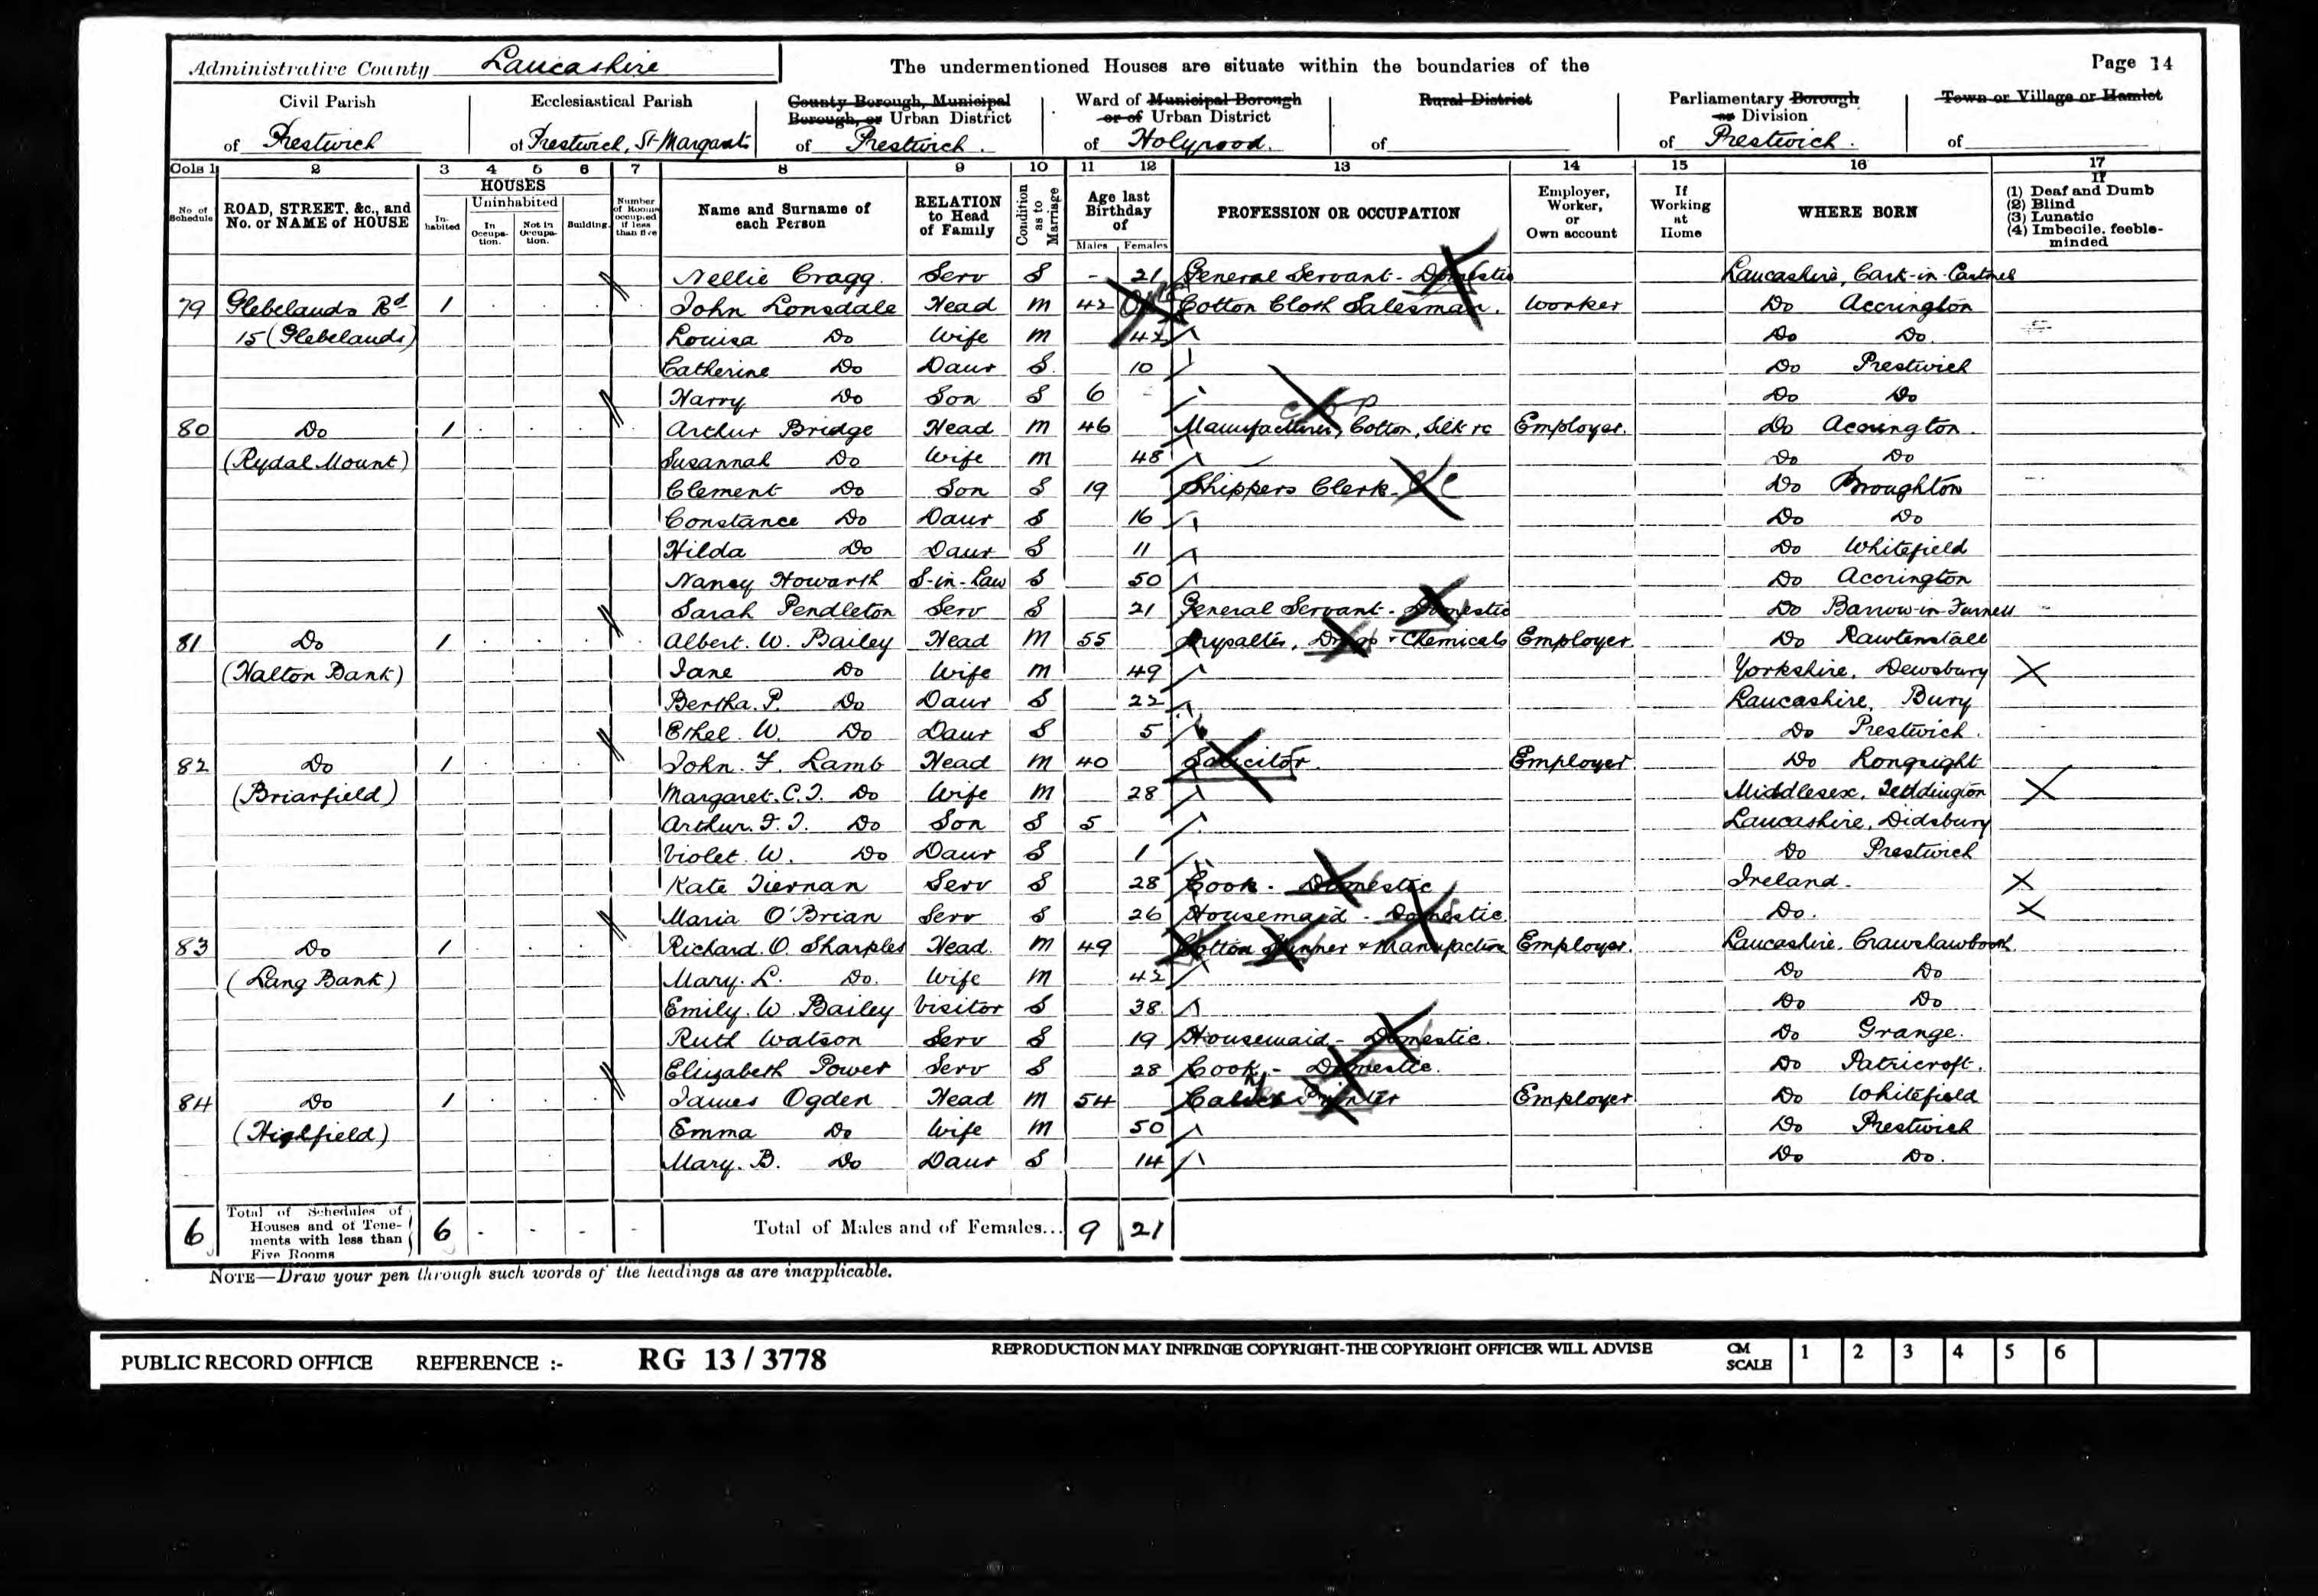 Administrative County Lancashire The undermentioned Houses are situate within the boundaries of the Page 14
Civil Parish Ecclesiastical Parish County Borough, Municipal Borough, or Urban District Ward of Municipal Borough or of Urban District Rural District Parliamentary Borough or Division Town or Village or Hamlet
of Prestwich of Prestwich, St Margarets of Prestwich. of Holyrood. of of Prestwich. of
Cols 1 2 3 4 5 6 7 8 9 10 11 12 13 14 15 16 17
No of Schedule ROAD, STREET, &c., and No. or NAME of HOUSE HOUSES Inhabited Uninhabited In Occupation. Not in Occupation. Building Number of Rooms occupied if less than five Name and Surname of each Person RELATION to Head of Family Condition as to Marriage Age last Birthday of Males Females PROFESSION OR OCCUPATION Employer, Worker, or Own account If Working at Home WHERE BORN If (1) Deaf and Dumb (2) Blind (3) Lunatic (4) Imbecile, feeble-minded
Nellie Cragg Serv S - 21 General Servant - Domestic Lancashire, Cark-in-Cartmel
79 Glebelands Rd 1 John Lonsdale Head M 42 Cotton Cloth Salesman. Worker Do Accrington
15 (Glebelands) Louisa Do Wife M 42 Do Do.
Catherine Do Daur S. 10 Do Prestwich
Harry Do Son S 6 Do Do
80 Do 1 Arthur Bridge Head M 46 Manufacturer, Cotton, Silk &c Employer. Do Accrington.
(Rydal Mount) Susannah Do Wife M 48 Do Do
Clement Do Son S 19 Shippers Clerk Do Broughton
Constance Do Daur S 16 Do Do
Hilda Do Daur S 11 Do Whitefield
Nancy Howarth S-in-Law S 50 Do Accrington
Sarah Pendleton Serv S 21 General Servant - Domestic Do Barrow-in-Furness
81 Do 1 Albert. W. Bailey Head M 55 Drysalter, Drugs & Chemicals Employer. Do Rawtenstall
(Halton Bank) Jane Do Wife M 49 Yorkshire, Dewsbury
Bertha. P. Do Daur S 22 Lancashire, Bury
Ethel. W. Do Daur S 5 Do Prestwich.
82 Do 1 John. F. Lamb Head M 40 Solicitor. Employer. Do Longsight
(Briarfield) Margaret. C. J. Do Wife M 28 Middlesex, Teddington
Arthur. F. J. Do Son S 5 Lancashire, Didsbury
Violet. W. Do Daur S 1 Do Prestwich
Kate Tiernan Serv S 28 Cook - Domestic Ireland.
Maria O'Brian Serv S 26 Housemaid - Domestic. Do.
83 Do 1 Richard. O. Sharples Head. M 49 Cotton Spinner & Manufacturer Employer. Lancashire. Crawshawbooth
(Lang Bank) Mary. L. Do. Wife M 42 Do Do
Emily. W. Bailey Visitor S 38 Do Do
Ruth Watson Serv S 19 Housemaid - Domestic. Do Grange.
Elizabeth Power Serv S 28 Cook - Domestic. Do Patricroft.
84 Do 1 James Ogden Head M 54 Calico Printer Employer Do Whitefield
(Highfield) Emma Do Wife M 50 Do Prestwich
Mary. B. Do Daur S 14 Do Do.
6 Total of Schedules of Houses and of Tenements with less than Five Rooms 6 - - - - Total of Males and of Females... 9 21
NOTE—Draw your pen through such words of the headings as are inapplicable.
PUBLIC RECORD OFFICE REFERENCE :- RG 13 / 3778 REPRODUCTION MAY INFRINGE COPYRIGHT-THE COPYRIGHT OFFICER WILL ADVISE CM SCALE 1 2 3 4 5 6